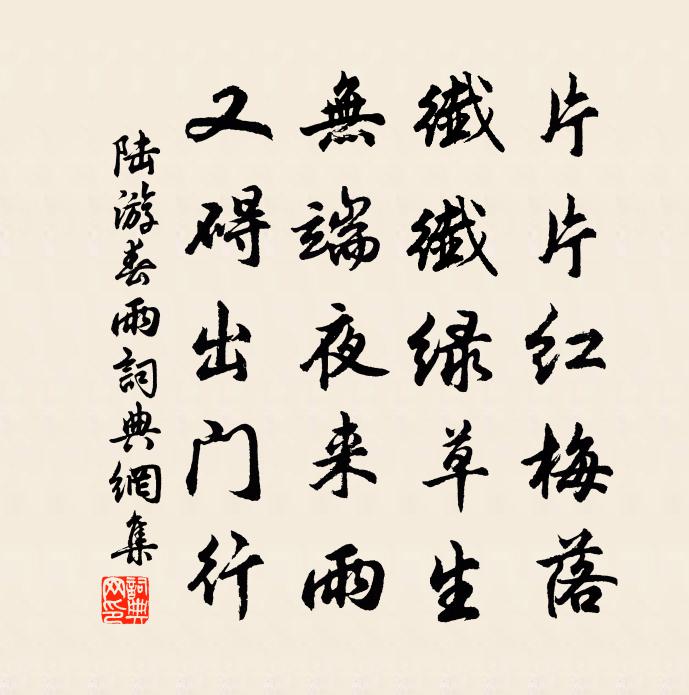 片片红梅落
纖纖绿草生
無端夜来雨
又碍出门行
陆游春雨詞典網集
詞典網印